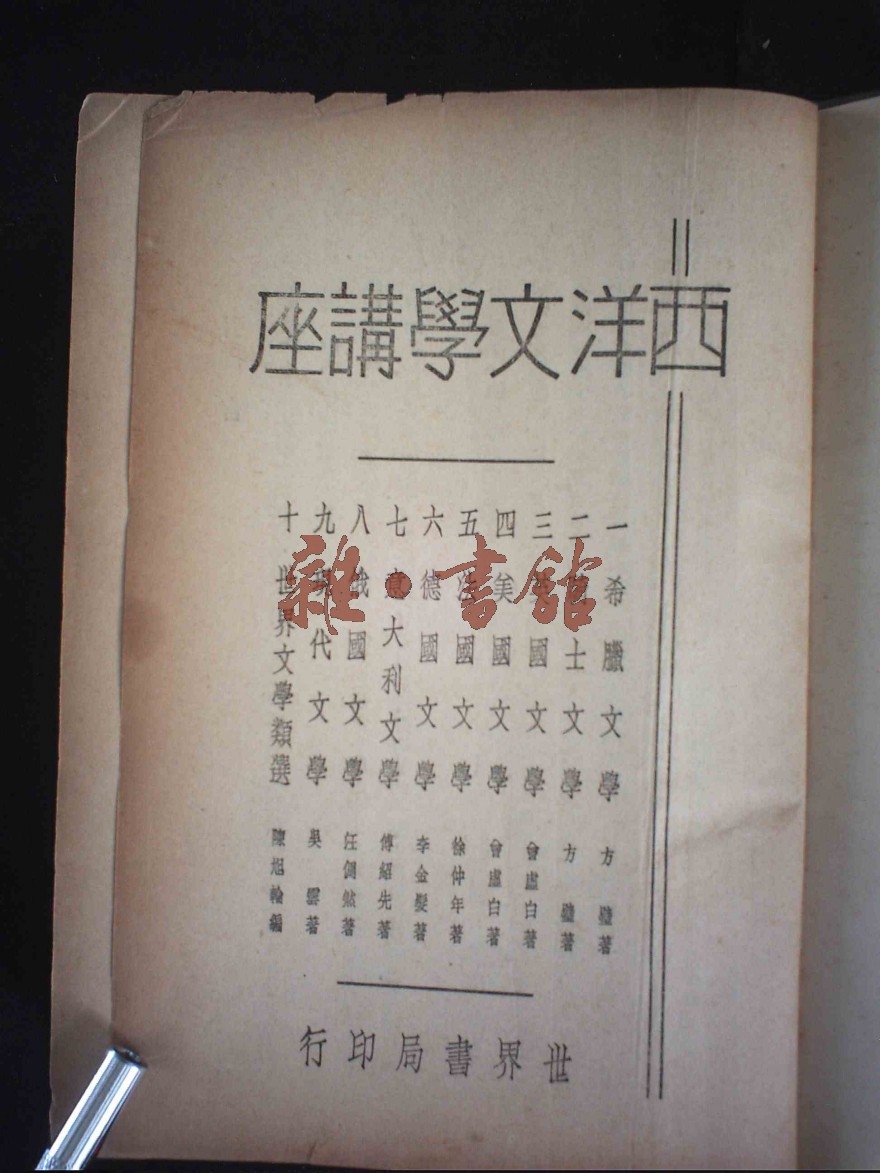 西洋文學講座
一 希臘文學 方璧著
二 騎士文學 方璧著
三 英國文學 曾虛白著
四 美國文學 曾虛白著
五 法國文學 徐仲年著
六 德國文學 李金髮著
七 意大利文學 傅紹先著
八 俄國文學 汪倜然著
九 現代文學 吳雲著
十 世界文學類選 陳旭輪編
世界書局印行
雜·書館